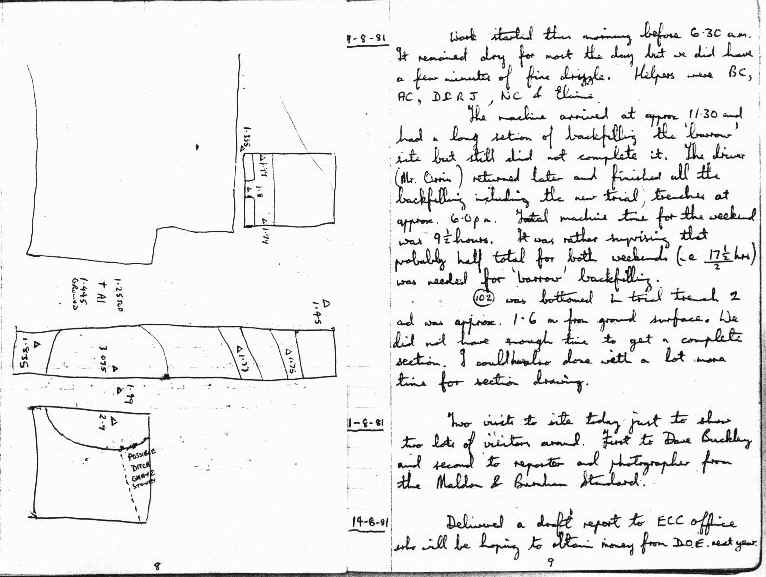 1.355
△ 1.77
1.8
△ 1.77
1.2570
+ A1
1.445
GROUND
△ 1.45
△ 1.835
△ 3.075
△ 1.77
△ 1.75
△ 1.99
△ 2.9
POSSIBLE
DITCH
8
9-8-81
Work started this morning before 6·30 a.m.
It remained dry for most the day but we did have
a few minutes of fine drizzle. Helpers were BC,
AC, DCRJ, NC &
The machine arrived at approx 11·30 and
had a long setion of backfilling the 'barrow'
site but still did not complete it. The driver
(Mr. ) returned later and finished all the
backfilling including the new trial trenches at
approx. 6·0 p.m. Total machine time for the weekend
was 9½ hours. It was rather suprising that
probably half total for both weekends (i.e 17½/2 hrs)
was needed for 'barrow' backfilling.
(102) was bottomed in trial trench 2
ad was approx. 1·6 m from ground surface. We
did not have enough time to get a complete
section. I could also done with a lot more
time for section drawing.
1-8-81
Two visits to site today just to show
two lots of visitors around. First to Dave Buckley
and second to reporter and photographer from
the Maldon & Burnham Standard.
14-8-81
Delivered a draft report to ECC offfice
who will be hoping to obtain money from D.O.E. next year.
9